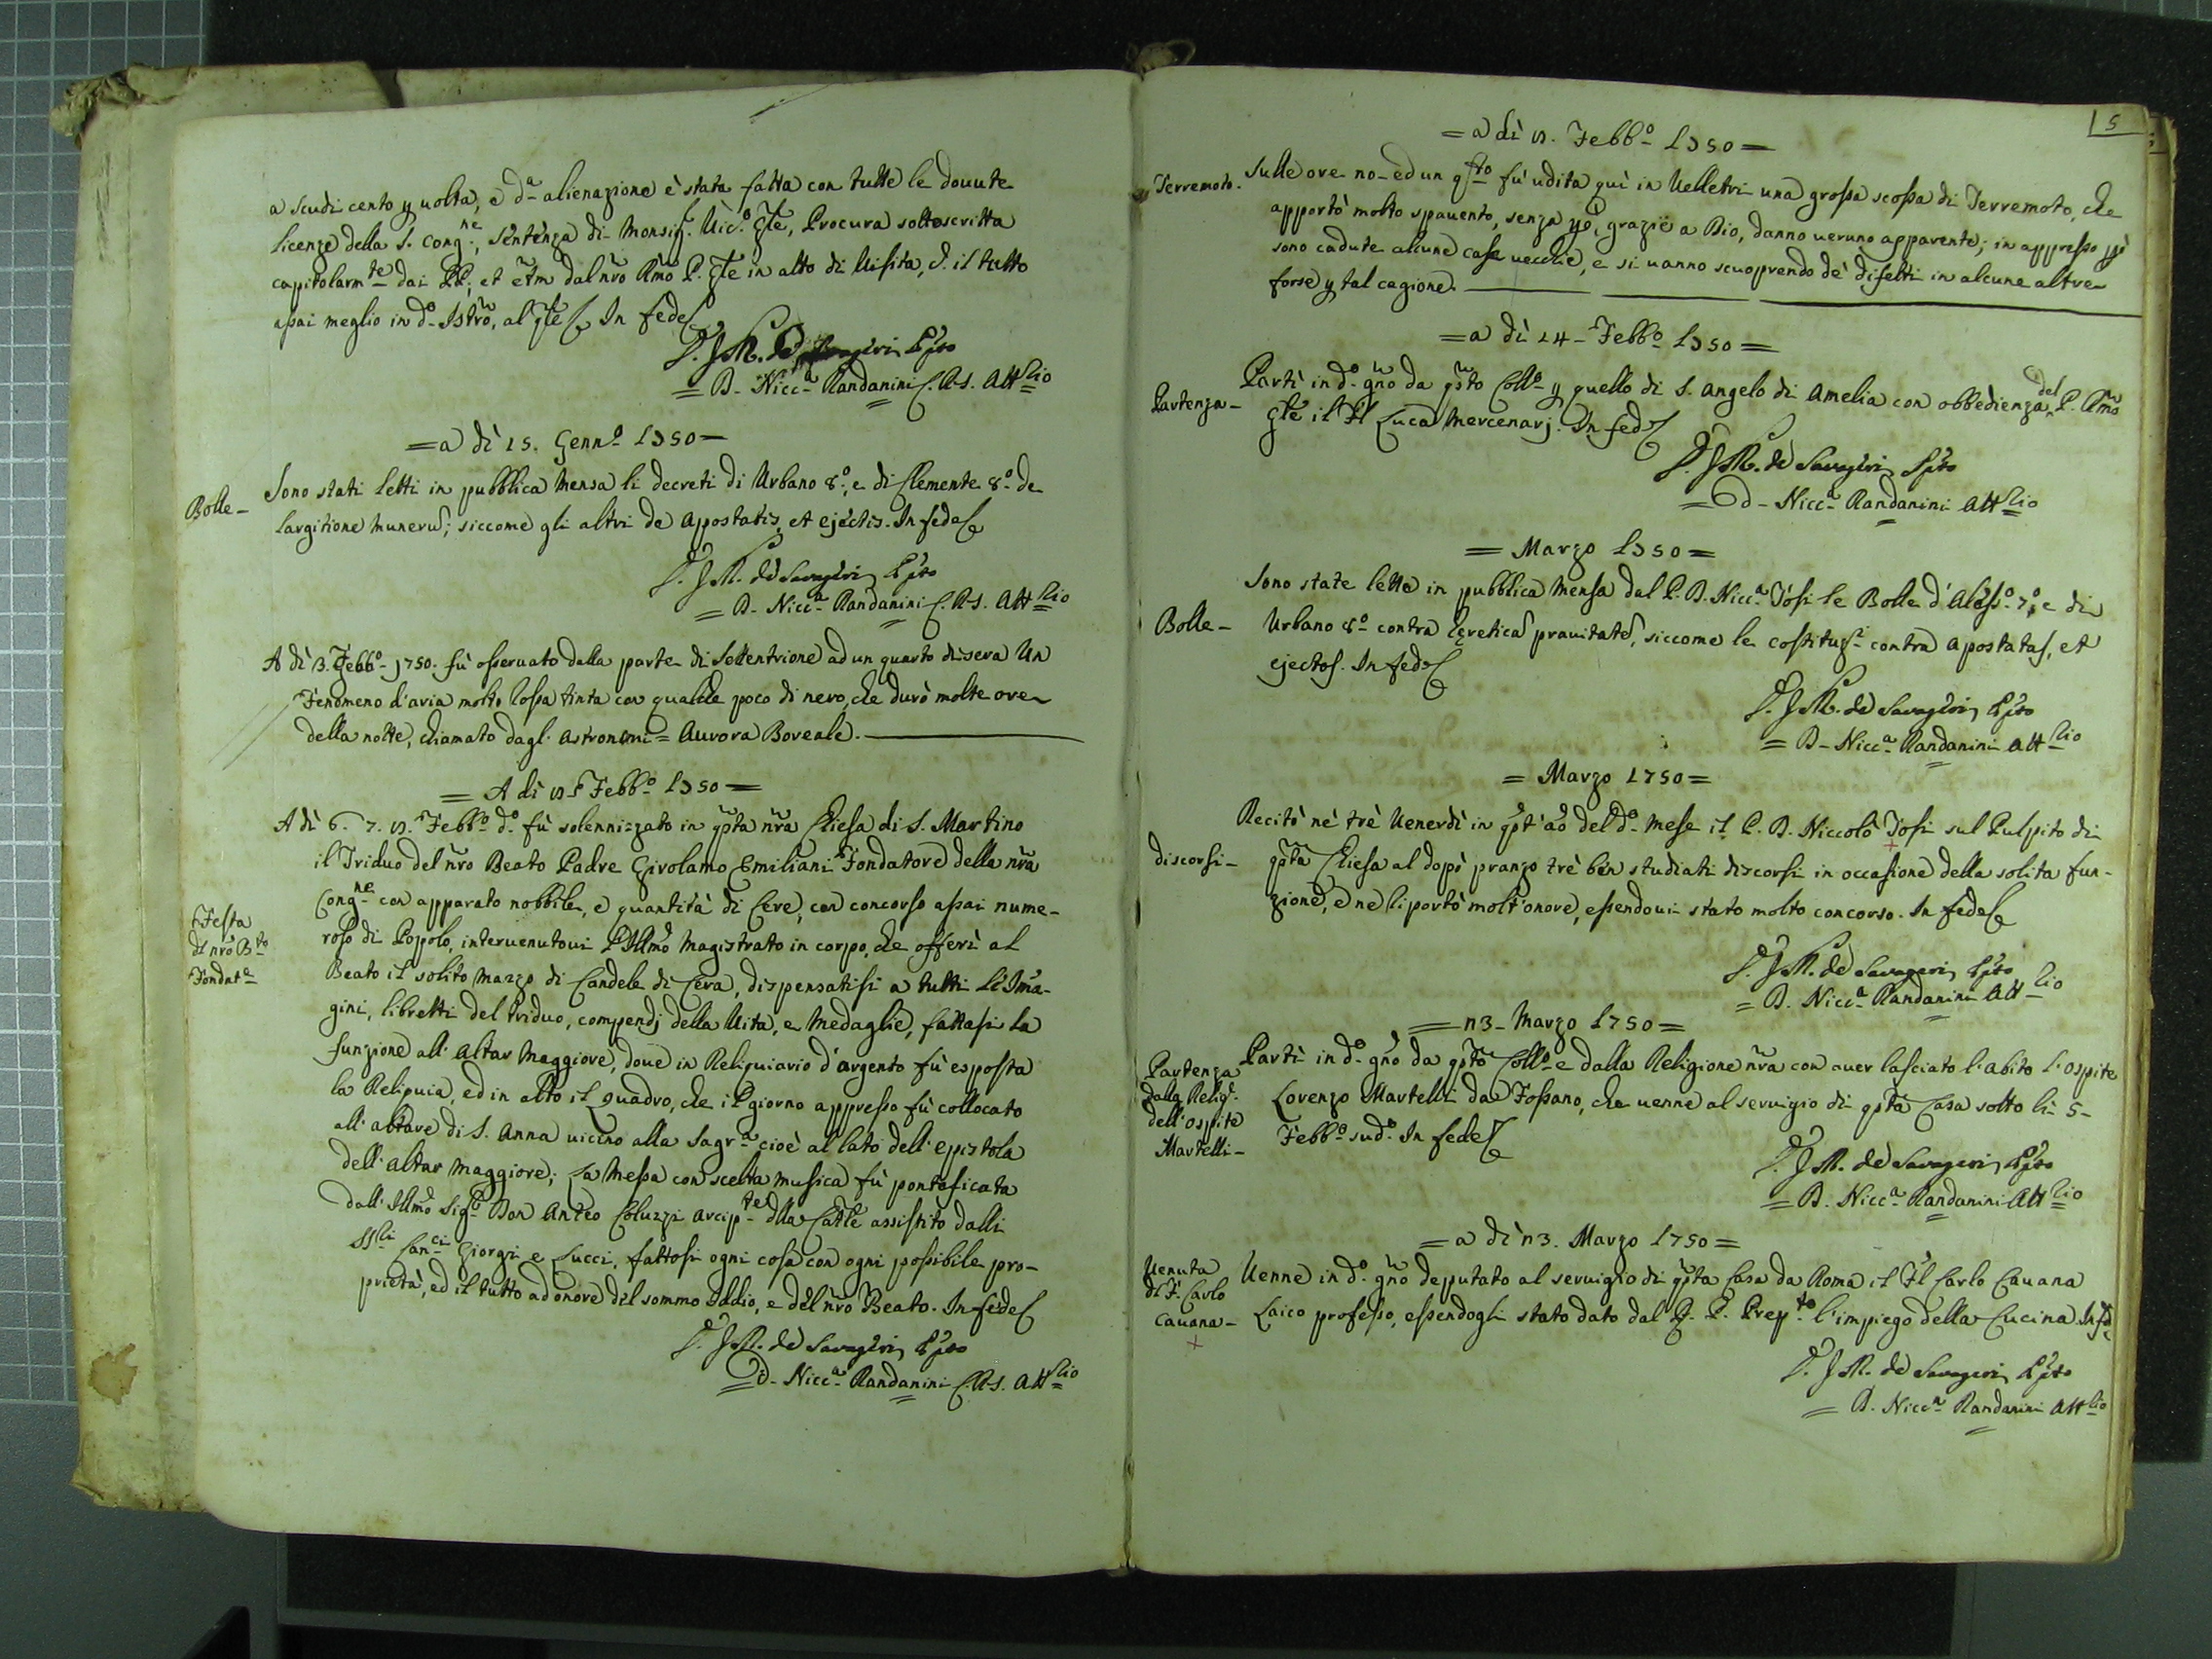 a scudi cento p uolta, e d.a alienazione è stata fatta con tutte le douute
licenze della S. Cong.ne, sentenza di Monsig.r Vic.o Gle, Procura sottoscritta
capitolarm.te dai PP., et etm dal nro Rmo P. Gle in atto di Uisita, il tutto
assai meglio in d.o Istro, al qle In fede
D. Nicc.a Randanini C.R.S. Att.lio
= a di 15. Genn.o 1750 =
Bolle - Sono stati letti in pubblica Mensa li decreti di Urbano 8.o, e di Clemente 8.o de
largitione munerũ; siccome gli altri de Appostatis, et ejectis. In fede
P. G. M. de Savageri Ppto
= D. Nicc.a Randanini C.R.S. Att.lio
A dì 3. Febb.o 1750. fù osseruato dalla parte di Settentrione ad un quarto di sera Un
Fenomeno d'aria molto rossa tinta con qualche poco di nero, che durò molte ore
della notte, chiamato dagl'Astronomi = Aurora Boreale.
= A di 8 Febb.o 1750 =
A dì 6. 7. 8. Febb.o d.o fù solennizzato in qsta nra Chiesa di S. Martino
il Triduo del nro Beato Padre Girolamo Emiliani Fondatore della nra
Cong.ne con apparato nobbile, e quantità di Cere, con concorso assai nume-
Festa
del nro B.to
Fondat.e
roso di Popolo, interuenutoui l'Illmo Magistrato in corpo, che offerì al
Beato il solito mazzo di Candele di Cera, dispensatisi a tutti l'Ima-
gini, libretti del triduo, compendj della Uita, e Medaglie, fattasi la
funzione all'Altar Maggiore, doue in Reliquiario d'argento fù esposta
la Reliquia, ed in alto il quadro, che il giorno appresso fù collocato
all'altare di S. Anna uicino alla Sagr.a cioè al lato dell'epistola
dell'Altar Maggiore; La Messa con scelta musica fù pontificata
dall'Illmo Sig.r Don Anteo Coluzzi Arcip.te dlla Catle assistito dalli
SS.ri Can.ci Giorgi e Lucci, fattosi ogni cosa con ogni possibile pro-
prietà, ed il tutto ad onore del sommo Iddio, e del nro Beato. In fede
P. G. M. de Savageri Ppto
= D. Nicc.a Randanini C.R.S. Att.lio
5
= a dì 8. Febb.o 1750 =
Terremoto. Sulle ore no- ed un q.to fù udita quì in Uelletri una grossa scossa di Terremoto, che
apportò molto spauento, senza pò, grazie a Dio, danno ueruno apparente; in appresso pò
sono cadute alcune case uecchie, e si uanno scuoprendo de' difetti in alcune altre
forse p tal cagione.
= a dì 14 - Febb.o 1750 =
Partenza - Partì in d.o gno da qsto Coll.o p quello di S. Angelo di Amelia con obbedienza del P. Rmo
Gle il Fl Luca Mercenarj. In fede
P. G. M. de Savageri Ppto
= D. Nicc.a Randanini Att.lio
= Marzo 1750 =
Sono state lette in pubblica Mensa dal P. D. Nicc.a Tosi le Bolle d'Aless.o 7.o, e di
Bolle - Urbano 8.o contra hęreticã prauitatẽ, siccome le costituz.i contra apostatas, et
ejectos. In fede
P. G. M. de Savageri Ppto
= D. Nicc.a Randanini Att.lio
= Marzo 1750 =
Recitò ne' trè Uenerdì in qst'aõ del d.o Mese il P. D. Niccolò Tosi sul Pulpito di
discorsi - qsta Chiesa al dopò pranzo trè ben studiati discorsi in occasione della solita fun-
zione, e ne riportò molt'onore, essendoui stato molto concorso. In fede
P. G. M. de Savageri Ppto
= D. Nicc.a Randanini Att.lio
= 13 - Marzo 1750 =
Partenza
dalla Relig.e
dell'ospite
Martelli -
Partì in d.o gno da qsto Coll.o e dalla Religione nra con auer lasciato l'abito l'ospite
Lorenzo Martelli da Fossano, che uenne al seruigio di qsta Casa sotto li 5 -
Febb.o sud.o In fede
P. G. M. de Savageri Ppto
= D. Nicc.a Randanini Att.lio
= a dì 13. Marzo 1750 =
Uenuta
di F. Carlo
Cauana -
Uenne in d.o gno deputato al seruigio di qsta Casa da Roma il Fl Carlo Cauana
Laico professo, essendogli stato dato dal P. Prep.to l'impiego della Cucina. In fd
P. G. M. de Savageri Ppto
= D. Nicc.a Randanini Att.lio